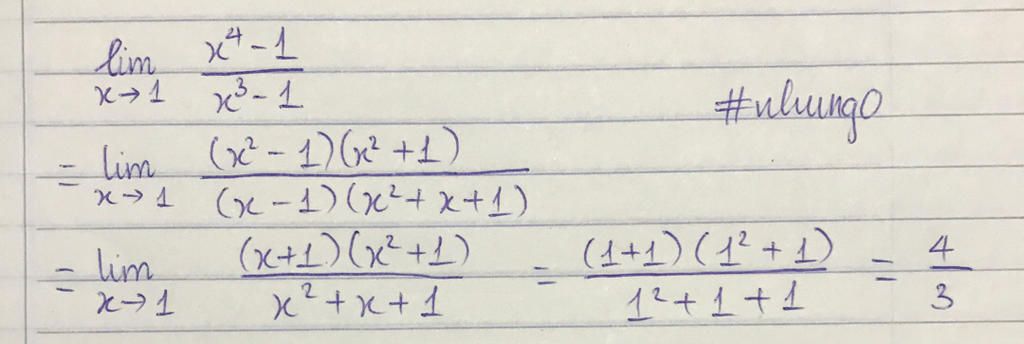 lim x→1 (x⁴ - 1)/(x³ - 1)
#nhung0
= lim x→1 ((x² - 1)(x² + 1))/((x - 1)(x² + x + 1))
= lim x→1 ((x+1)(x² + 1))/(x² + x + 1) = ((1+1)(1² + 1))/(1² + 1 + 1) = 4/3